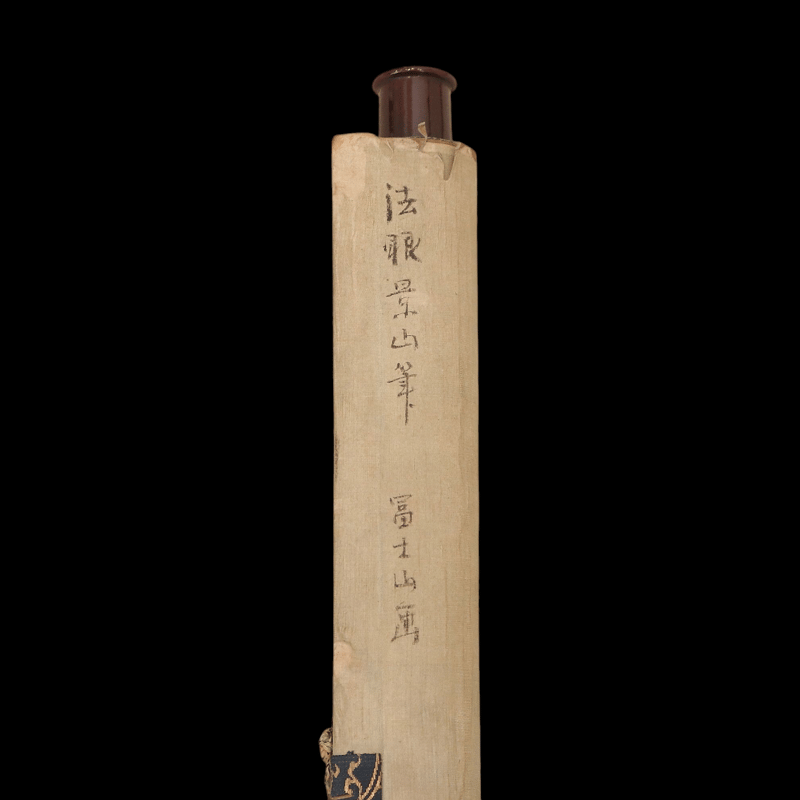 法眼景山筆　冨士山画